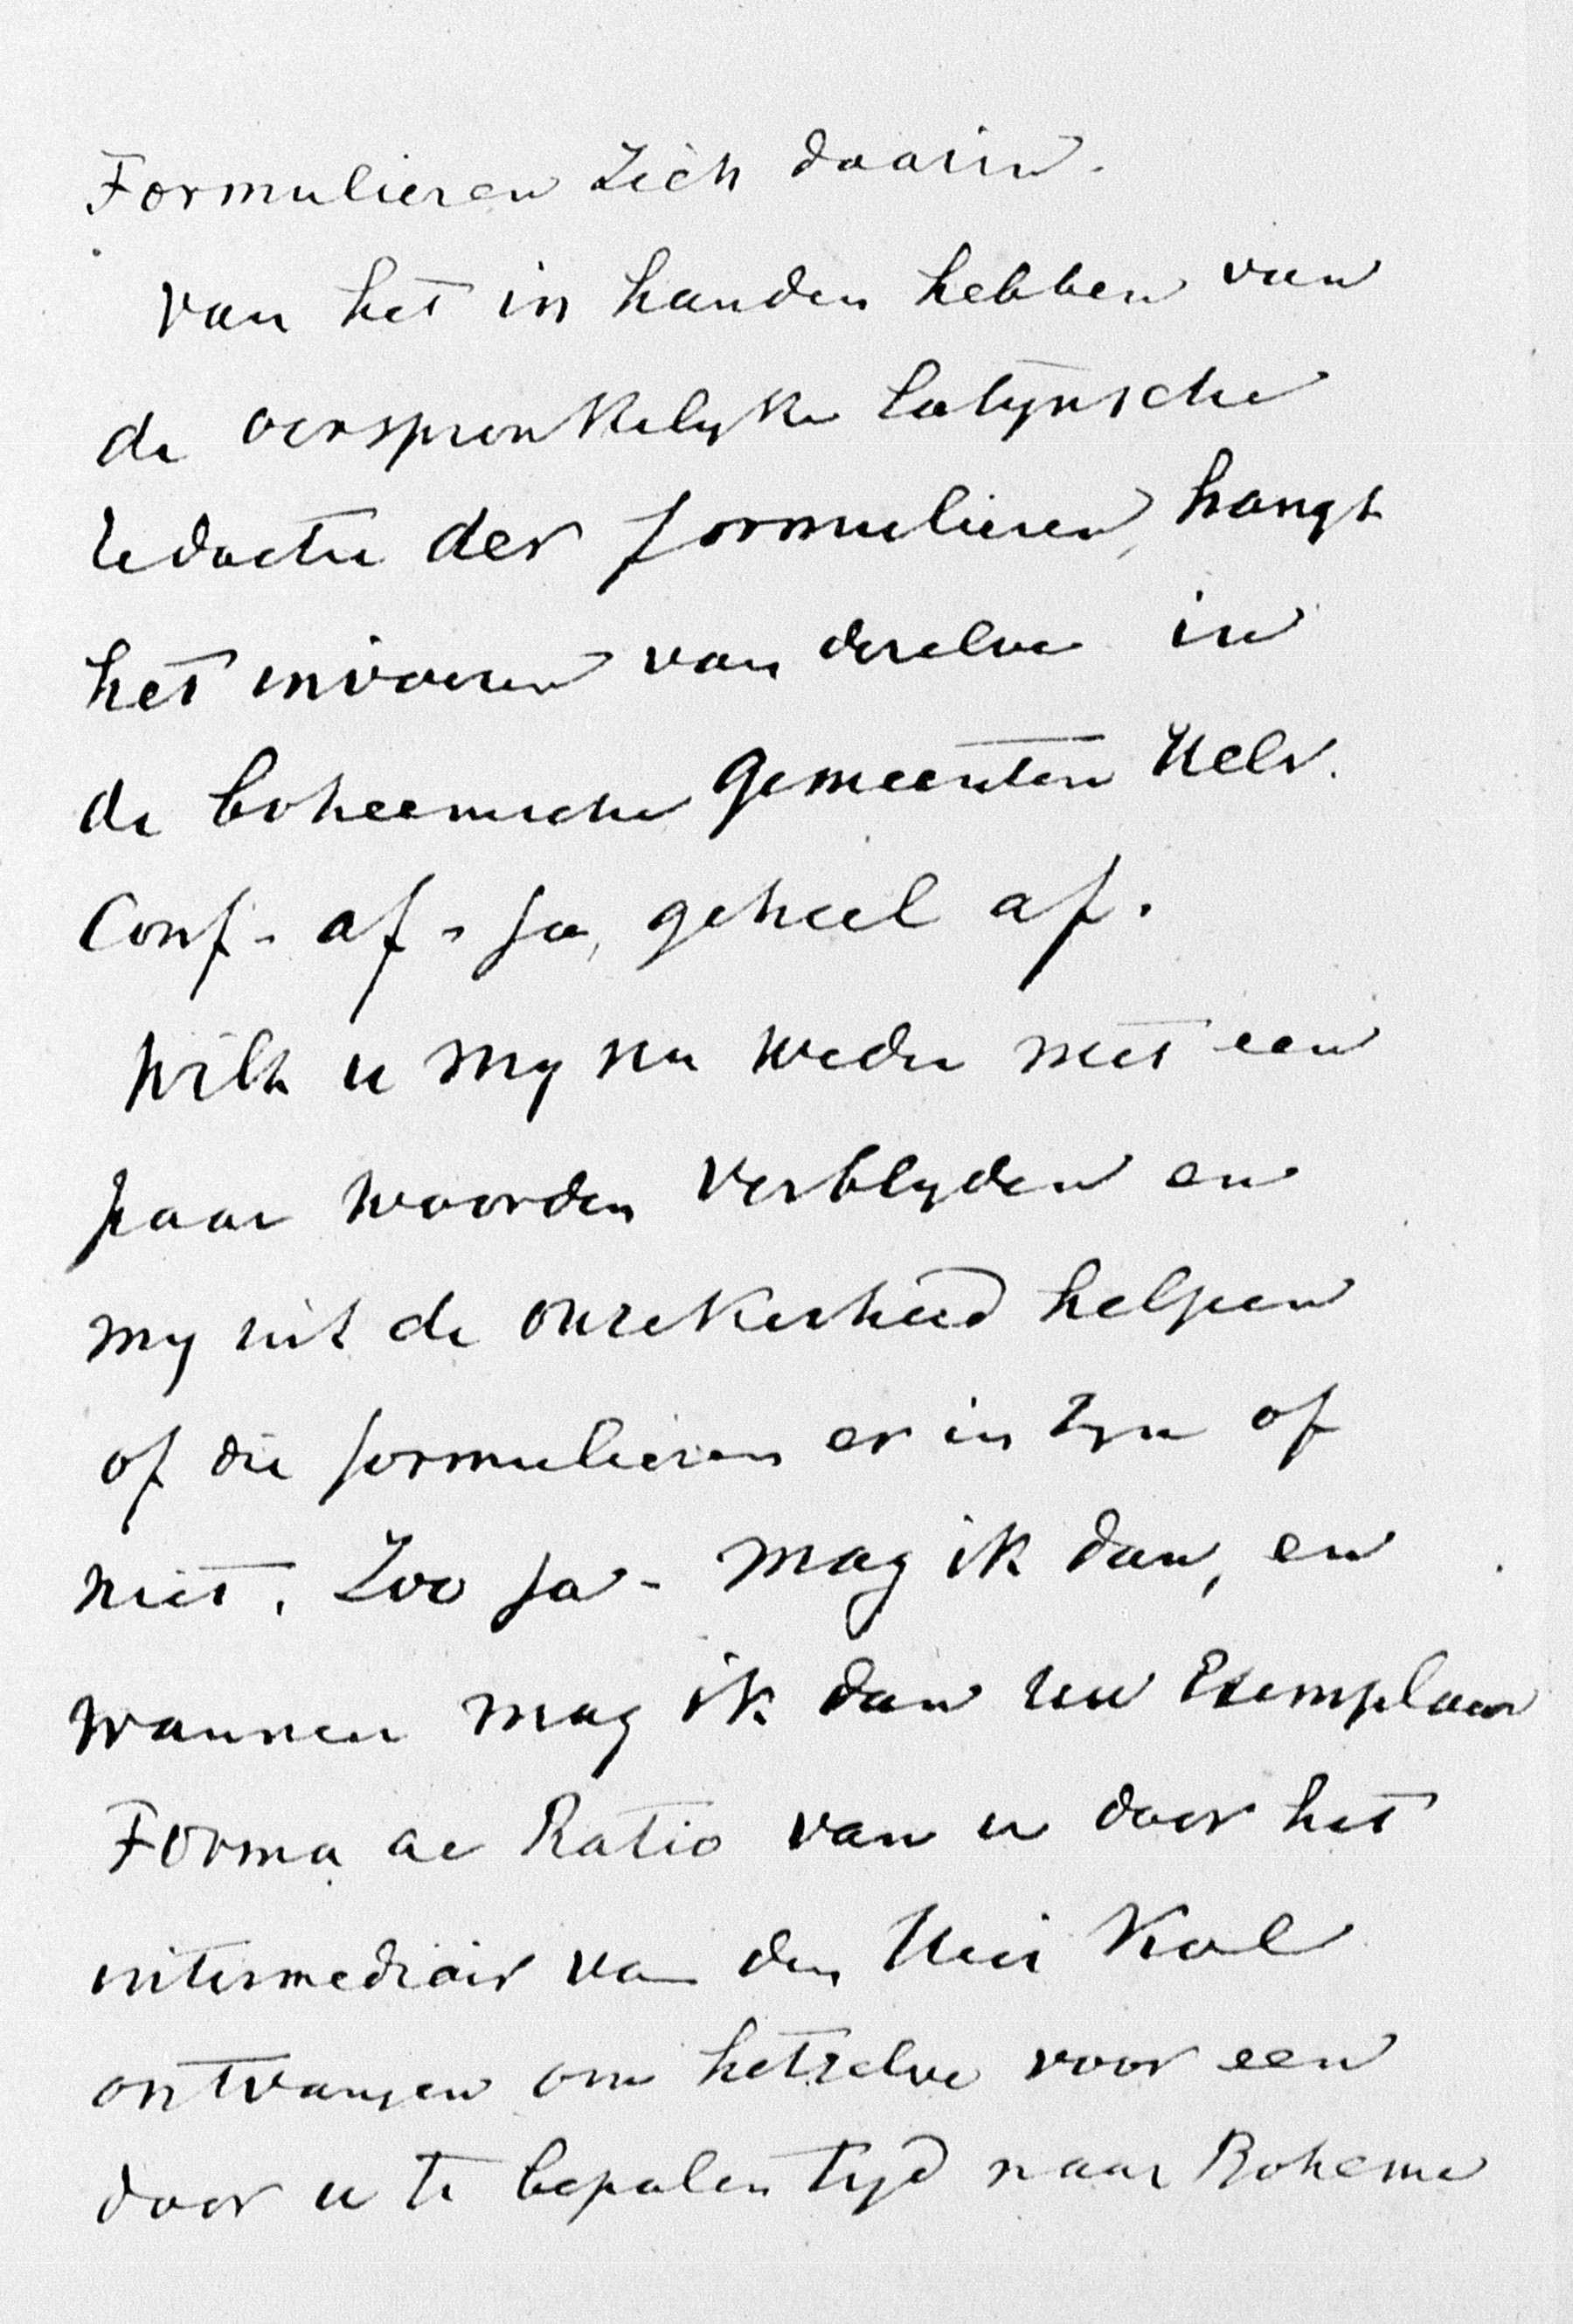 Formulieren zich daarin.
Van het in handen hebben van
de oerspronkelyke Latynsche
redactie der formulieren, hangt
het invoeren van dezelve in
de boheemsche gemeenten Helv.
Conf - af - ja, geheel af.
Wilt u my nu weder met een
paar woorden verblyden en
my uit de onzekerheid helpen
of die formulieren er in zyn of
niet. Zoo ja - mag ik dan, en
wanneer mag ik dan uw Exemplaar
Forma ac Ratio van u door het
intermediair van den Heer Kol
ontvangen om hetzelve voor een
door u te bepalen tyd naar Boheme